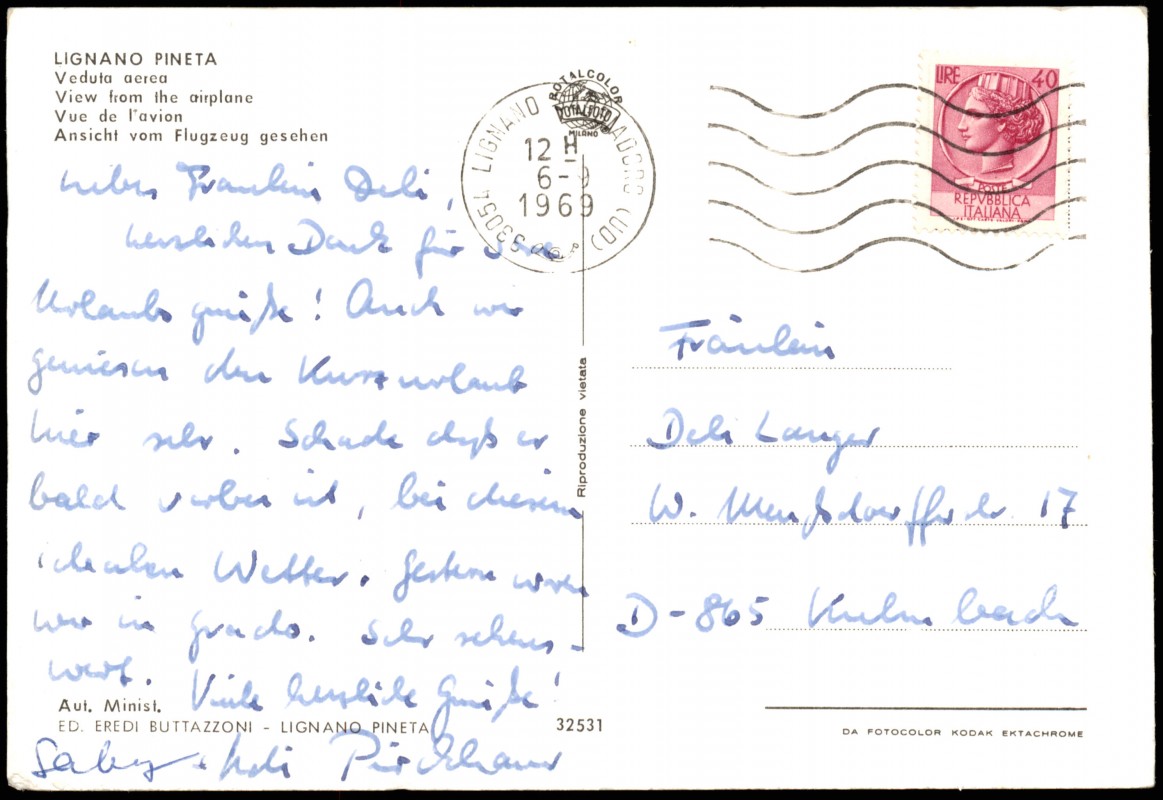 LIGNANO PINETA
Veduta aerea
View from the airplane
Vue de l'avion
Ansicht vom Flugzeug gesehen
Liebes Fräulein Deli,
herzlichen Dank für Ihre
Urlaubsgrüße! Auch wir
geniesen den Kurzurlaub
hier sehr. Schade daß er
bald vorbei ist, bei diesem
idealen Wetter. Gestern waren
wir in Grado. Sehr sehens-
wert. Viele herzliche Grüße!
Gaby + Adi
Aut. Minist.
ED. EREDI BUTTAZZONI - LIGNANO PINETA
32531
Riproduzione vietata
ROTALCOLOR
ROTALFOTO
MILANO
33054 LIGNANO SABBIADORO (UD)
12 H
6-9
1969
LIRE 40
POSTE
REPVBBLICA
ITALIANA
Fräulein
Deli Langer
17
D-865 Kulmbach
DA FOTOCOLOR KODAK EKTACHROME